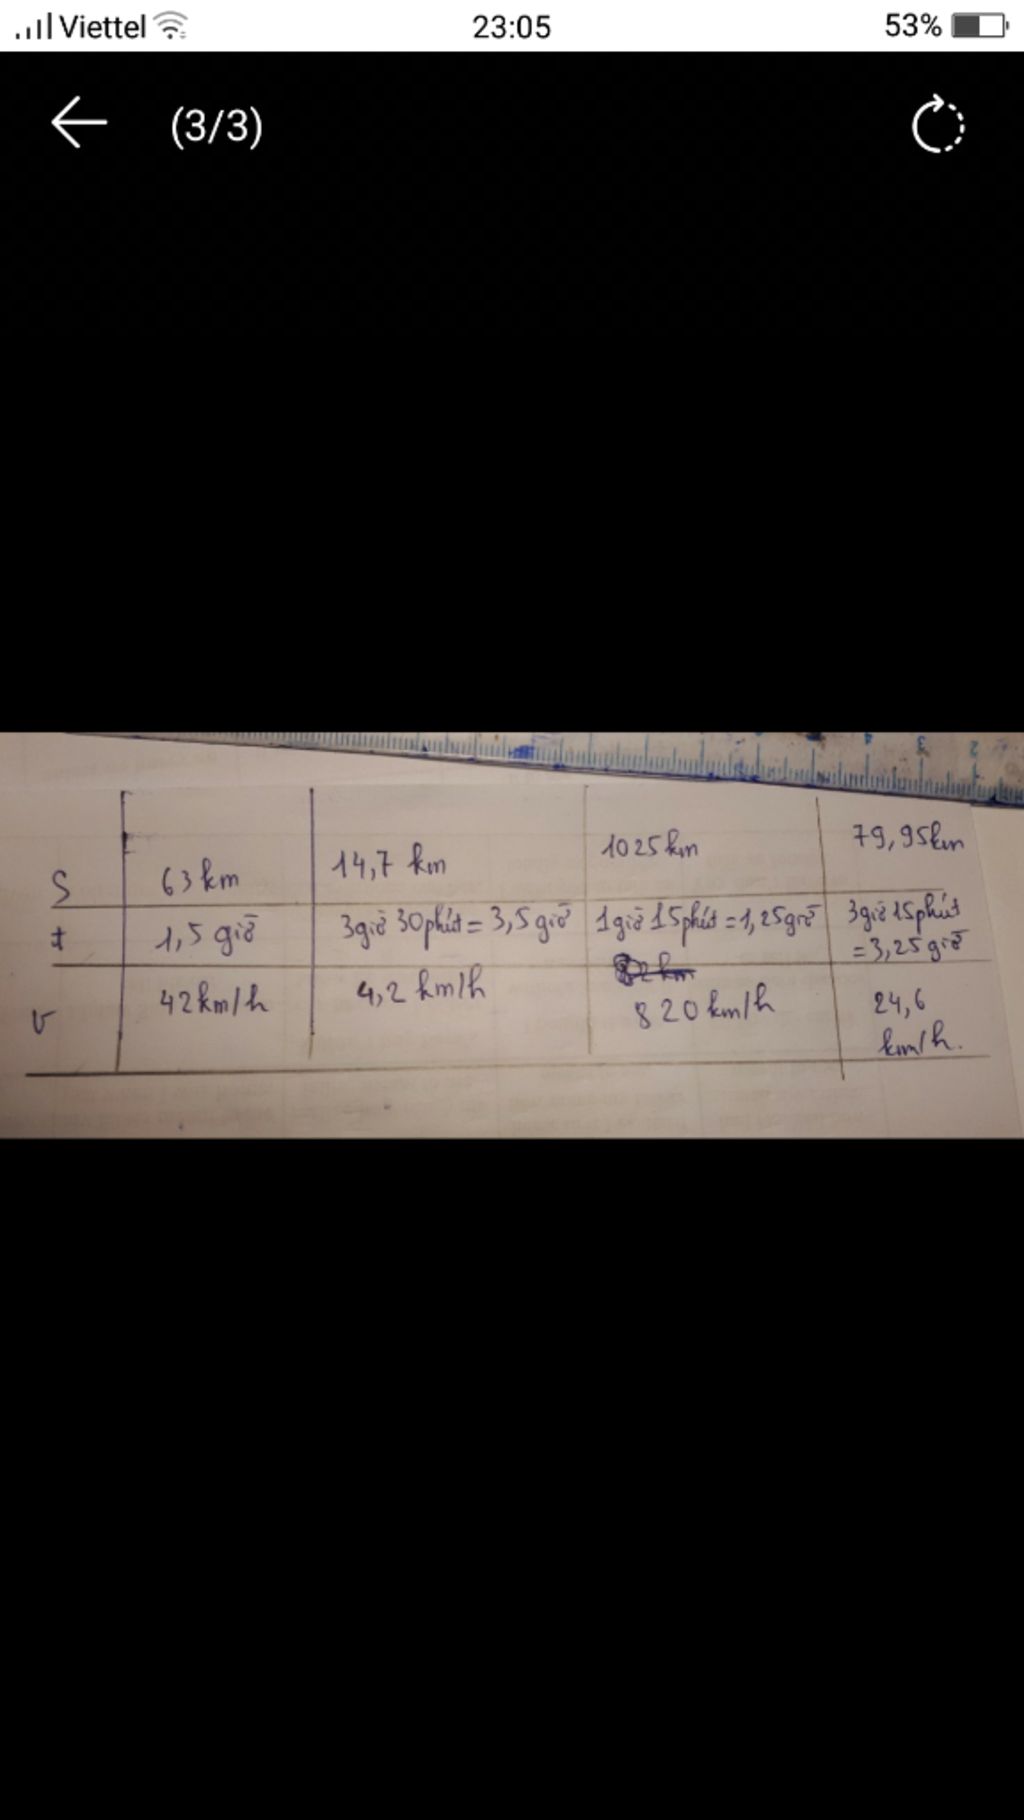 Viettel 23:05 53%
(3/3)
4 3 2
S 63 km 14,7 km 1025 km 79,95 km
t 1,5 giờ 3 giờ 30 phút = 3,5 giờ 1 giờ 15 phút = 1,25 giờ 3 giờ 15 phút
= 3,25 giờ
v 42 km/h 4,2 km/h 820 km/h 24,6
km/h.